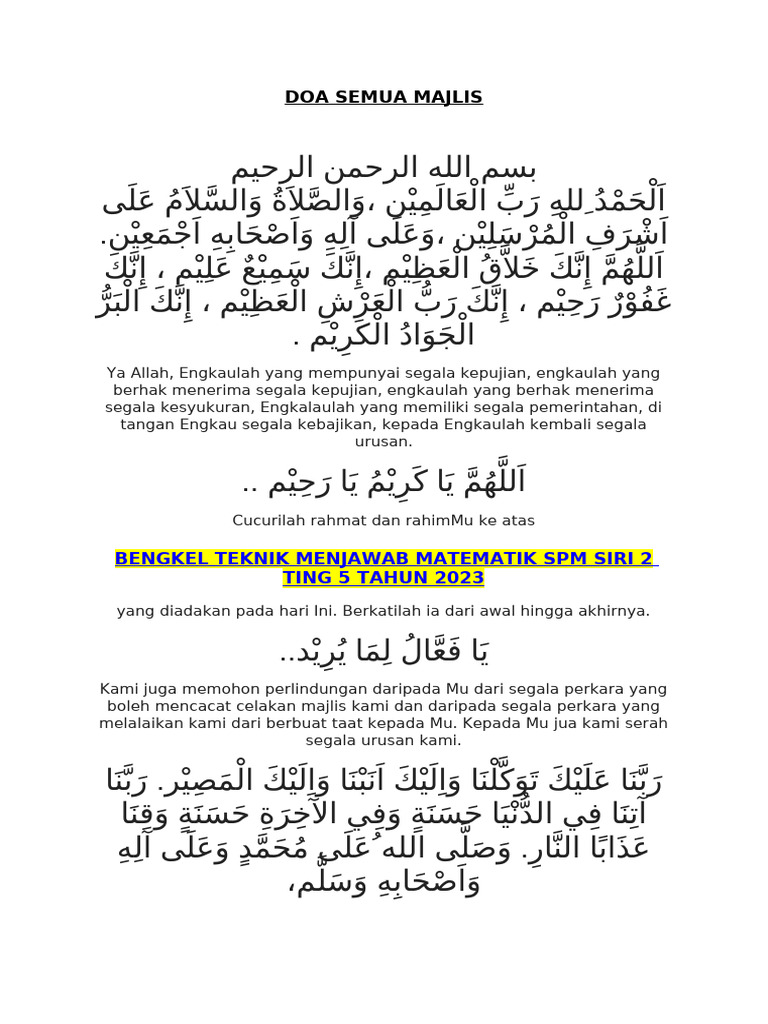 DOA SEMUA MAJLIS
بسم الله الرحمن الرحيم
اَلْحَمْدُ ِللهِ رَبِّ الْعَالَمِيْنِ ،وَالصَّلاَةُ وَالسَّلاَمُ عَلَى
اَشْرَفِ الْمُرْسَلِيْن ،وَعَلَى آلِهِ وَاَصْحَابِهِ اَجْمَعِيْنِ.
اَللَّهُمَّ إِنَّكَ خَلاَّقُ الْعَظِيْم ،إِنَّكَ سَمِيْعٌ عَلِيْم ، إِنَّكَ
غَفُوْرٌ رَحِيْم ، إِنَّكَ رَبُّ الْعَرْشِ الْعَظِيْم ، إِنَّكَ الْبَرُّ
الْجَوَادُ الْكَرِيْم .
Ya Allah, Engkaulah yang mempunyai segala kepujian, engkaulah yang
berhak menerima segala kepujian, engkaulah yang berhak menerima
segala kesyukuran, Engkalaulah yang memiliki segala pemerintahan, di
tangan Engkau segala kebajikan, kepada Engkaulah kembali segala
urusan.
اَللَّهُمَّ يَا كَرِيْمُ يَا رَحِيْم ..
Cucurilah rahmat dan rahimMu ke atas
BENGKEL TEKNIK MENJAWAB MATEMATIK SPM SIRI 2
TING 5 TAHUN 2023
yang diadakan pada hari Ini. Berkatilah ia dari awal hingga akhirnya.
يَا فَعَّالُ لِمَا يُرِيْد..
Kami juga memohon perlindungan daripada Mu dari segala perkara yang
boleh mencacat celakan majlis kami dan daripada segala perkara yang
melalaikan kami dari berbuat taat kepada Mu. Kepada Mu jua kami serah
segala urusan kami.
رَبَّنَا عَلَيْكَ تَوَكَّلْنَا وَاِلَيْكَ اَنَبْنَا وَاِلَيْكَ الْمَصِيْر. رَبَّنَا
آتِنَا فِي الدُّنْيَا حَسَنَةٍ وَفِي الآخِرَةِ حَسَنَةٍ وَقِنَا
عَذَابًا النَّارِ. وَصَلَّى الله ُعَلَى مُحَمَّدٍ وَعَلَى آلِهِ
وَاَصْحَابِهِ وَسَلَّم،